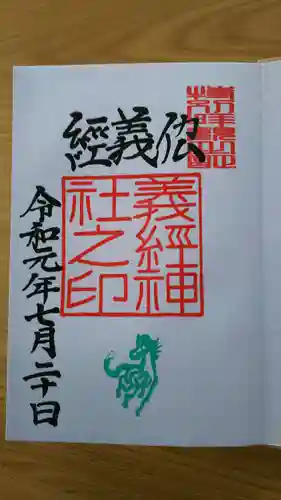 義經
義經神
社之印
令和元年七月二十日